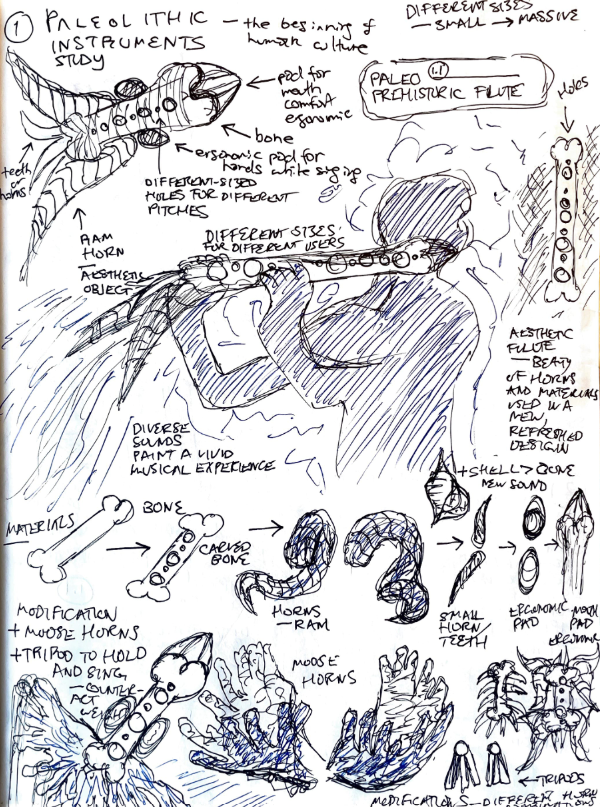 ① PALEOLITHIC
INSTRUMENTS
STUDY
- the beginning of
human culture
DIFFERENT SIZES
- SMALL → MASSIVE
pad for
mouth
comfort
ergonomic
bone
ergonomic pad for
hands while singing
DIFFERENT-SIZED
HOLES FOR DIFFERENT
PITCHES
teeth
or
horns
RAM
HORN
AESTHETIC
OBJECT
PALEO 1.1
PREHISTORIC FLUTE
HOLES
DIFFERENT SIZES
FOR DIFFERENT
USERS
AESTHETIC
FLUTE
- BEATY
OF HORNS
AND MATERIALS
USED IN A
NEW,
REFRESHED
DESIGN
DIVERSE
SOUNDS
PAINT A VIVID
MUSICAL EXPERIENCE
+ SHELL > BONE
NEW SOUND
MATERIALS
BONE
CARVED
BONE
HORNS
- RAM
SMALL
HORN/
TEETH
ERGONOMIC
PAD
MOUTH
PAD
ERGONOMIC
MODIFICATION
+ MOOSE HORNS
+ TRIPOD TO HOLD
AND BING
- COUNTER-
ACT
MOOSE
HORNS
TRIPODS
MODIFICATIONS - DIFFERENT HORN